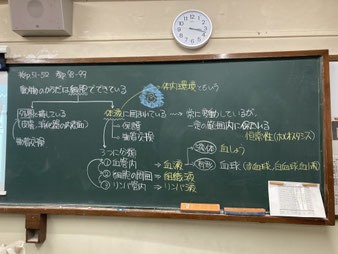 動物のからだは細胞でできている
体内環境という
外界に接している
体液に囲まれている → 常に変動しているが、
一定の範囲内に保たれる
恒常性(ホメオスタシス)
保護
物質交換
物質交換
3つに分類
① 血管内 → 血液
液体 血しょう
有形 血球(赤血球、白血球、血小板)
② 細胞の周囲 ⇒ 組織液
③ リンパ管内 ⇒ リンパ液